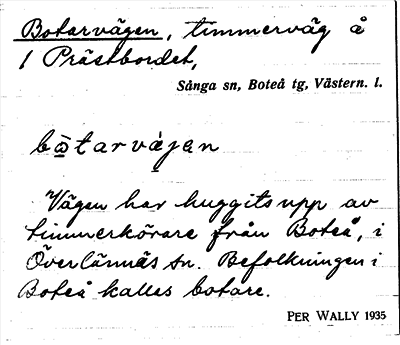 Botarvägen, timmerväg å
1 Prästbordet,
Sånga sn, Boteå tg, Västern. l.
bò̱tarvä̀gan
Vägen har huggits upp av
timmerkörare från Boteå, i
Överlännäs sn. Befolkningen i
Boteå kallas botare.
PER WALLY 1935